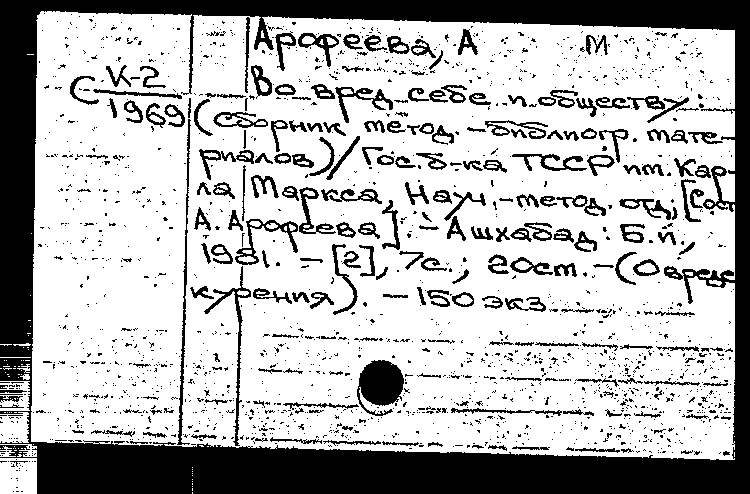 Арофеева, А М
С К-2
1969
Во вред себе и обществу:
(сборник метод.-библиогр. мате-
риалов)/ Гос. б-ка ТССР им. Кар-
ла Маркса, Науч.-метод. отд, [Сост
А. Арофеева]. - Ашхабад: Б.и.,
1981. - [2], 7с.; 20см. - (О вреде
курения). - 150 экз